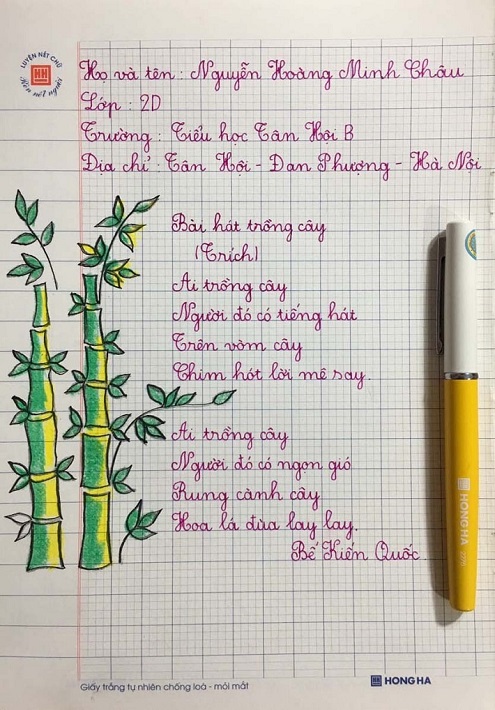 LUYỆN NÉT CHỮ
HH
Rèn nết người
Họ và tên : Nguyễn Hoàng Minh Châu
Lớp : 2D
Trường : Tiểu học Tân Hội B
Địa chỉ : Tân Hội - Đan Phượng - Hà Nội
Bài hát trồng cây
(Trích)
Ai trồng cây
Người đó có tiếng hát
Trên vòm cây
Chim hót lời mê say.
Ai trồng cây
Người đó có ngọn gió
Rung cành cây
Hoa lá đùa lay lay.
Bế Kiến Quốc
HONG HA
Giấy trắng tự nhiên chống loá - mỏi mắt
HONG HA